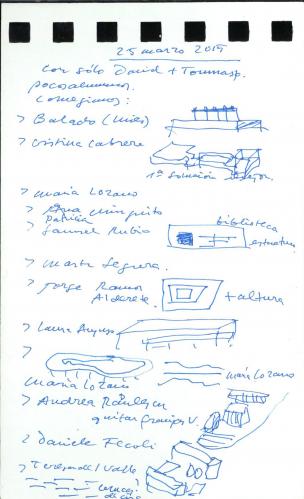 25 marzo 2015
con sólo David + Tommaso.
pocos alumnos.
Corregimos:
> Balado (Mies)
> Cristina Cabrera
1ª solución mejor.
> María Lozano
> Eva Chinquito
Patricia
> Samuel Rubio
biblioteca
estructura
> Marta Segura.
> Jorge Ramos
Alderete.
+ altura
> Laura
>
María Lozano
María Lozano
> Andrea
quitar
> Daniele
> Teresa del Valle